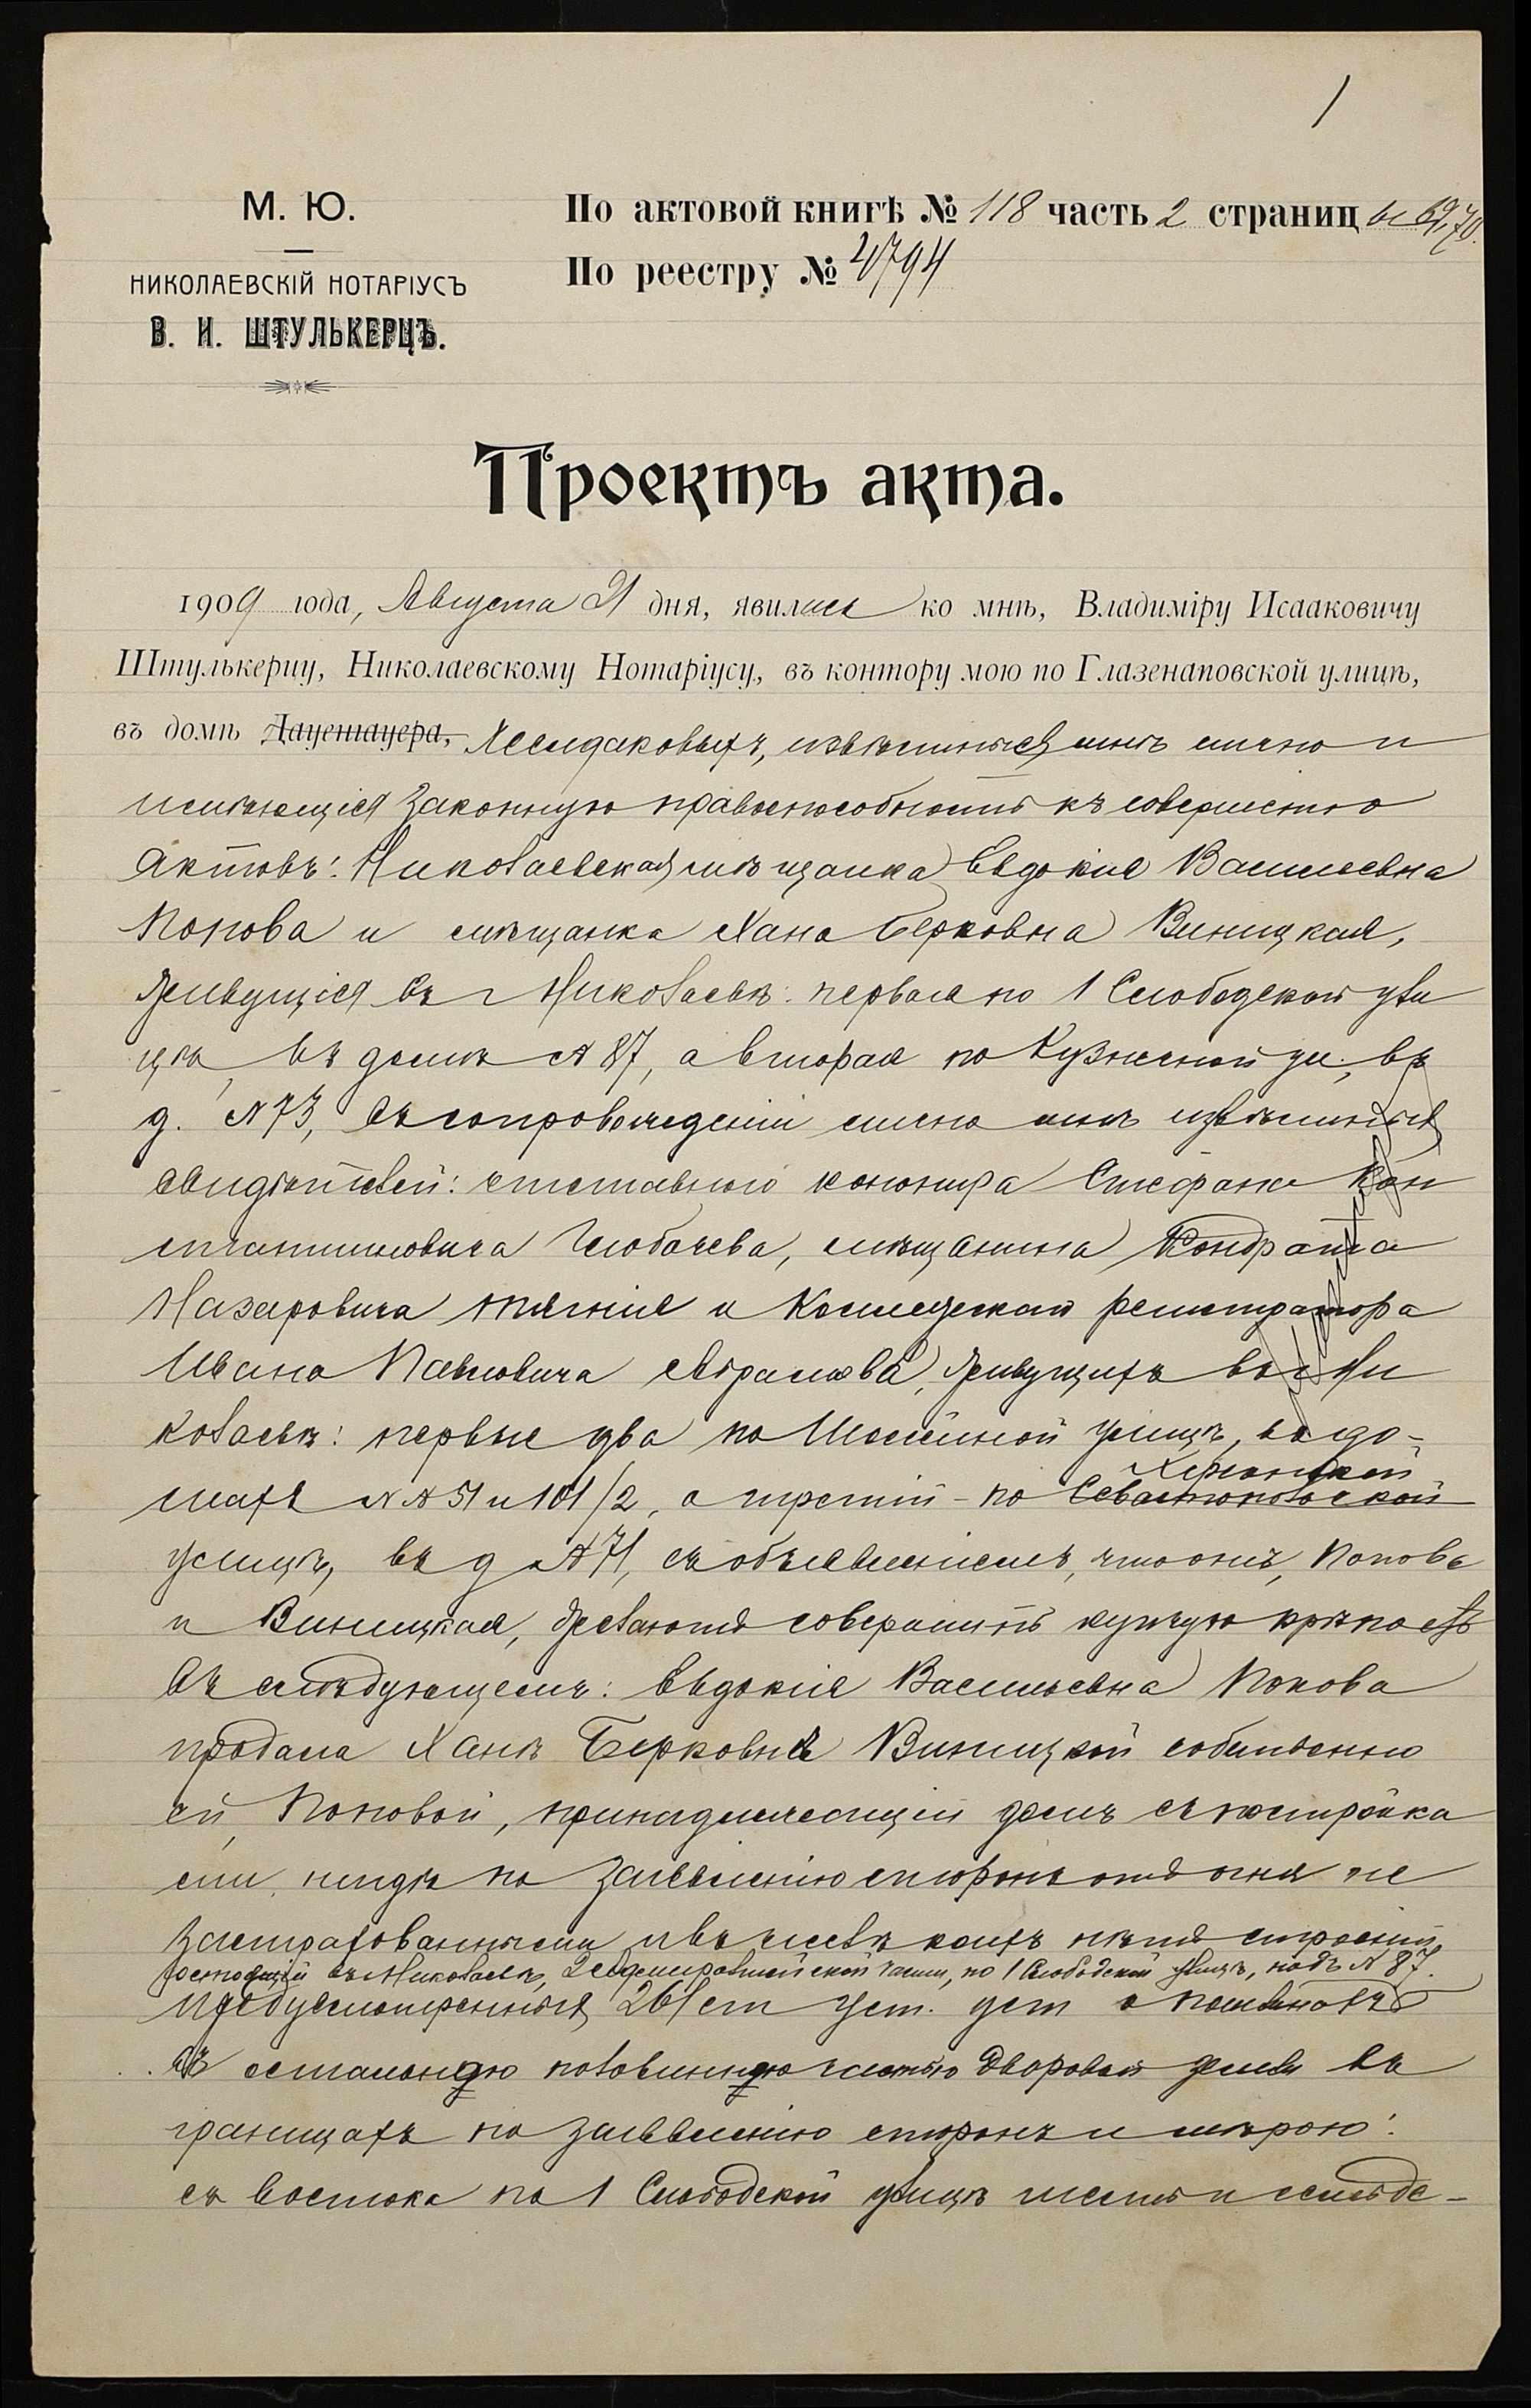 1
М. Ю.
НИКОЛАЕВСКІЙ НОТАРІУСЪ
В. И. ШТУЛЬКЕРЦЪ.
По актовой книгѣ № 118 часть 2 страниц ы 69, 70.
По реестру № 4794
Проектъ акта.
1909 года, Августа 21 дня, явились ко мнѣ, Владиміру Исааковичу
Штулькерцу, Николаевскому Нотаріусу, въ контору мою по Глазенаповской улицѣ,
въ домѣ Даустауера, извѣстныя мнѣ лично и
имѣющія законную правоспособность къ совершенію
актовъ: Николаевская мѣщанка Евдокія Васильевна
Попова и мѣщанка Хана Берковна Виницкая,
живущія въ г Николаевѣ: первая по 1 Слободской ули
цѣ, въ домѣ № 87, а вторая по Кузнечной ул., въ
д. № 73, въ сопровожденіи лично мнѣ извѣстныхъ
свидѣтелей: отставного Стефана Кон
стантиновича мѣщанина Кондрата
Назаровича и Коллежскаго регистратора
Ивана Павловича Абрамова, живущихъ въ г Ни
колаевѣ: первые два по улицѣ, въ до-
Херсонской
махъ №№ 51 и 101/2, а третій - по Севастопольской
улицѣ, въ д № 71, съ объявленіемъ, что онѣ, Попова
и Виницкая, желаютъ совершить купчую крѣпость
въ слѣдующемъ: Евдокія Васильевна Попова
продала Ханѣ Берковнѣ Виницкой собственно
ей, Поповой, принадлежащій домъ съ постройка
ми, нигдѣ по заявленію сторонъ отъ огня не
застрахованными и въ числѣ коихъ нѣтъ строеній,
состоящій въ г Николаевѣ, 2 Адмиралтейской части, по 1 Слободской улицѣ, подъ № 87.
предусмотренныхъ 261 ст уст. о пошлинахъ
съ остальною половинною частью дворовой земли въ
границахъ по заявленію сторонъ и мѣрою:
съ востока по 1 Слободской улицѣ шесть и семь де-